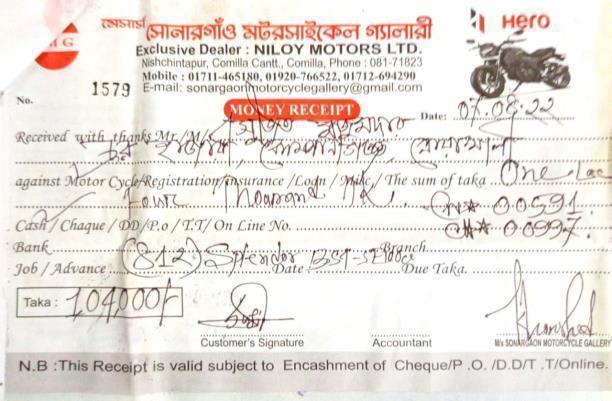 মেসার্স সোনারগাঁও মটরসাইকেল গ্যালারী
HERO
M G
Exclusive Dealer : NILOY MOTORS LTD.
Nishchintapur, Comilla Cantt., Comilla, Phone : 081-71823
Mobile : 01711-465180, 01920-766522, 01712-694290
E-mail: sonargaonmotorcyclegallery@gmail.com
No. 1579
MONEY RECEIPT
Date: 07.08.22
Received with thanks Mr./M/s
against Motor Cycle/Registration/insurance/Loan / Misc./ The sum of taka One Lac
Four Thousand Tk. 00591
Cash / Chaque / DD/P.o / T.T/ On Line No. 00997
Bank (812) Splendor Branch
Job / Advance Date Due Taka.
Taka : 104,000/-
Customer's Signature
Accountant
M/s SONARGAON MOTORCYCLE GALLERY
N.B :This Receipt is valid subject to Encashment of Cheque/P .O. /D.D/T .T/Online.